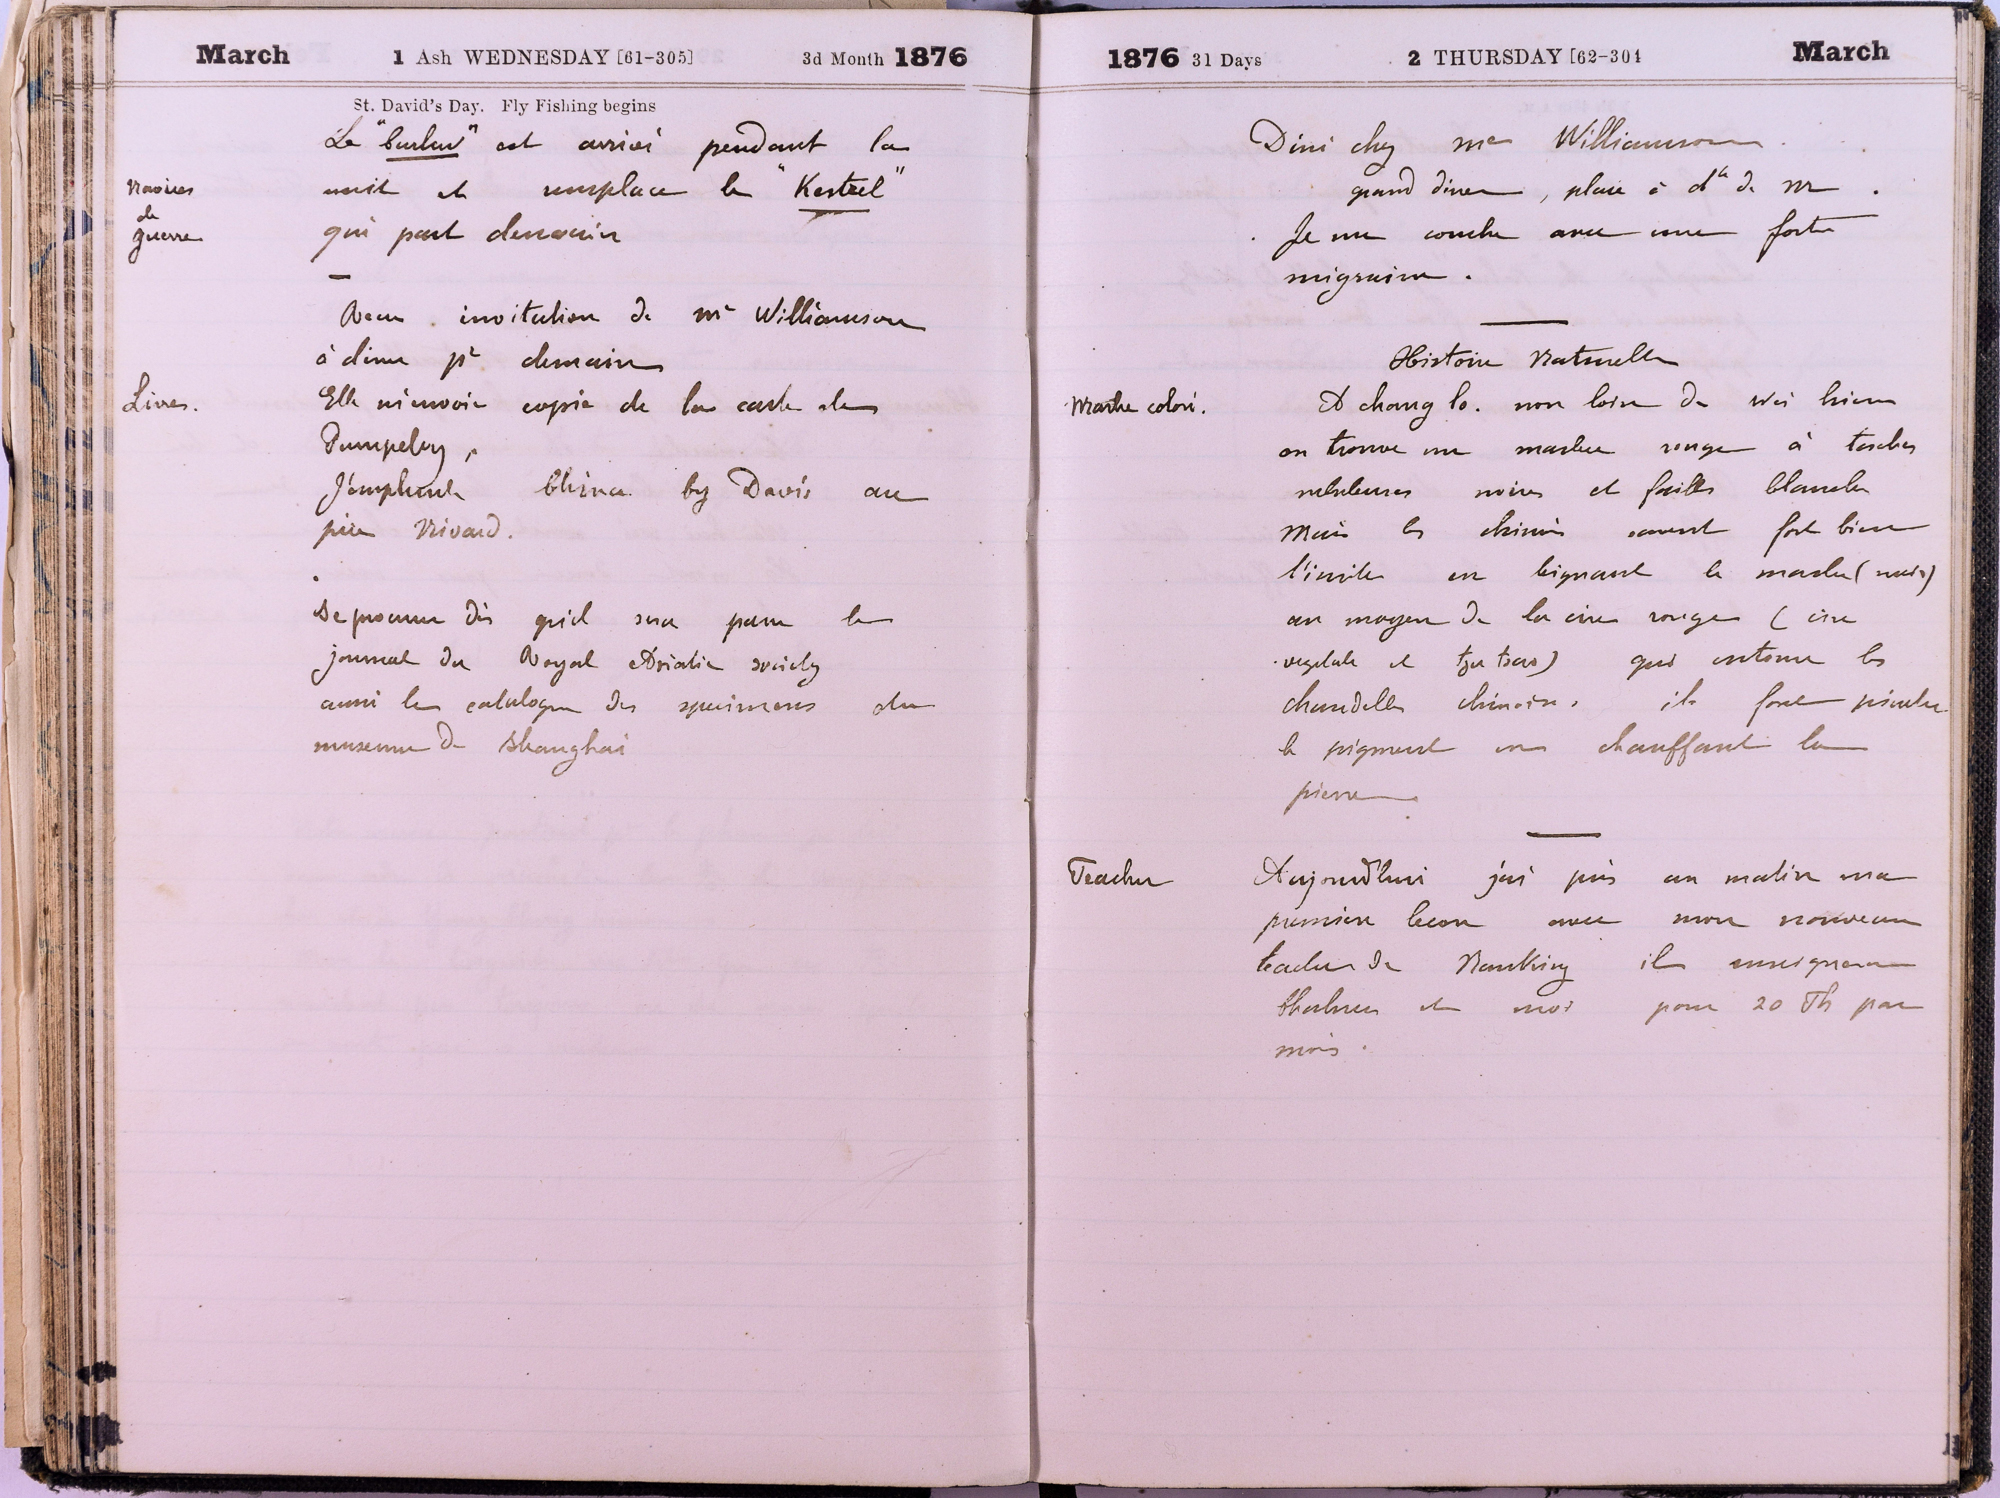 March 1 Ash WEDNESDAY [61-305] 3d Month 1876
St. David's Day. Fly Fishing begins
Le " " est arrivé pendant la
Navires
de
guerre
nuit et remplace le "Kestrel"
qui part demain
—
Recu invitation de Mr Williamson
à diner pr demain
Livres.
Elle m'envoie copie de la carte de
Pumpelly,
J'emprunte China by Davis au
père Rivard.
Se procurer dès qu'il sera paru le
journal du Royal Asiatic society
aussi le catalogue des specimens du
museum de Shanghai
1876 31 Days 2 THURSDAY [62-304 March
Diné chez Mr Williamson
grand diner, placé à dte de Mr.
Je me couche avec une forte
migraine.
Histoire Naturelle
Marbre coloré.
A chang lo. non loin de wei hien
on trouve un marbre rouge à taches
nebuleuses noires et failles blanches
Mais les chinois savent fort bien
l'imiter en teignant le marbre (noir)
au moyen de la cire rouge (cire
vegetale et tzu tsao) qui entoure les
chandelles chinoises. ils font penetrer
le pigment en chauffant la
pierre.
Teacher
Aujourd'hui j'ai pris au matin ma
premiere lecon avec mon nouveau
teacher de Nanking il enseignera
et moi pour 20 Th par
mois.